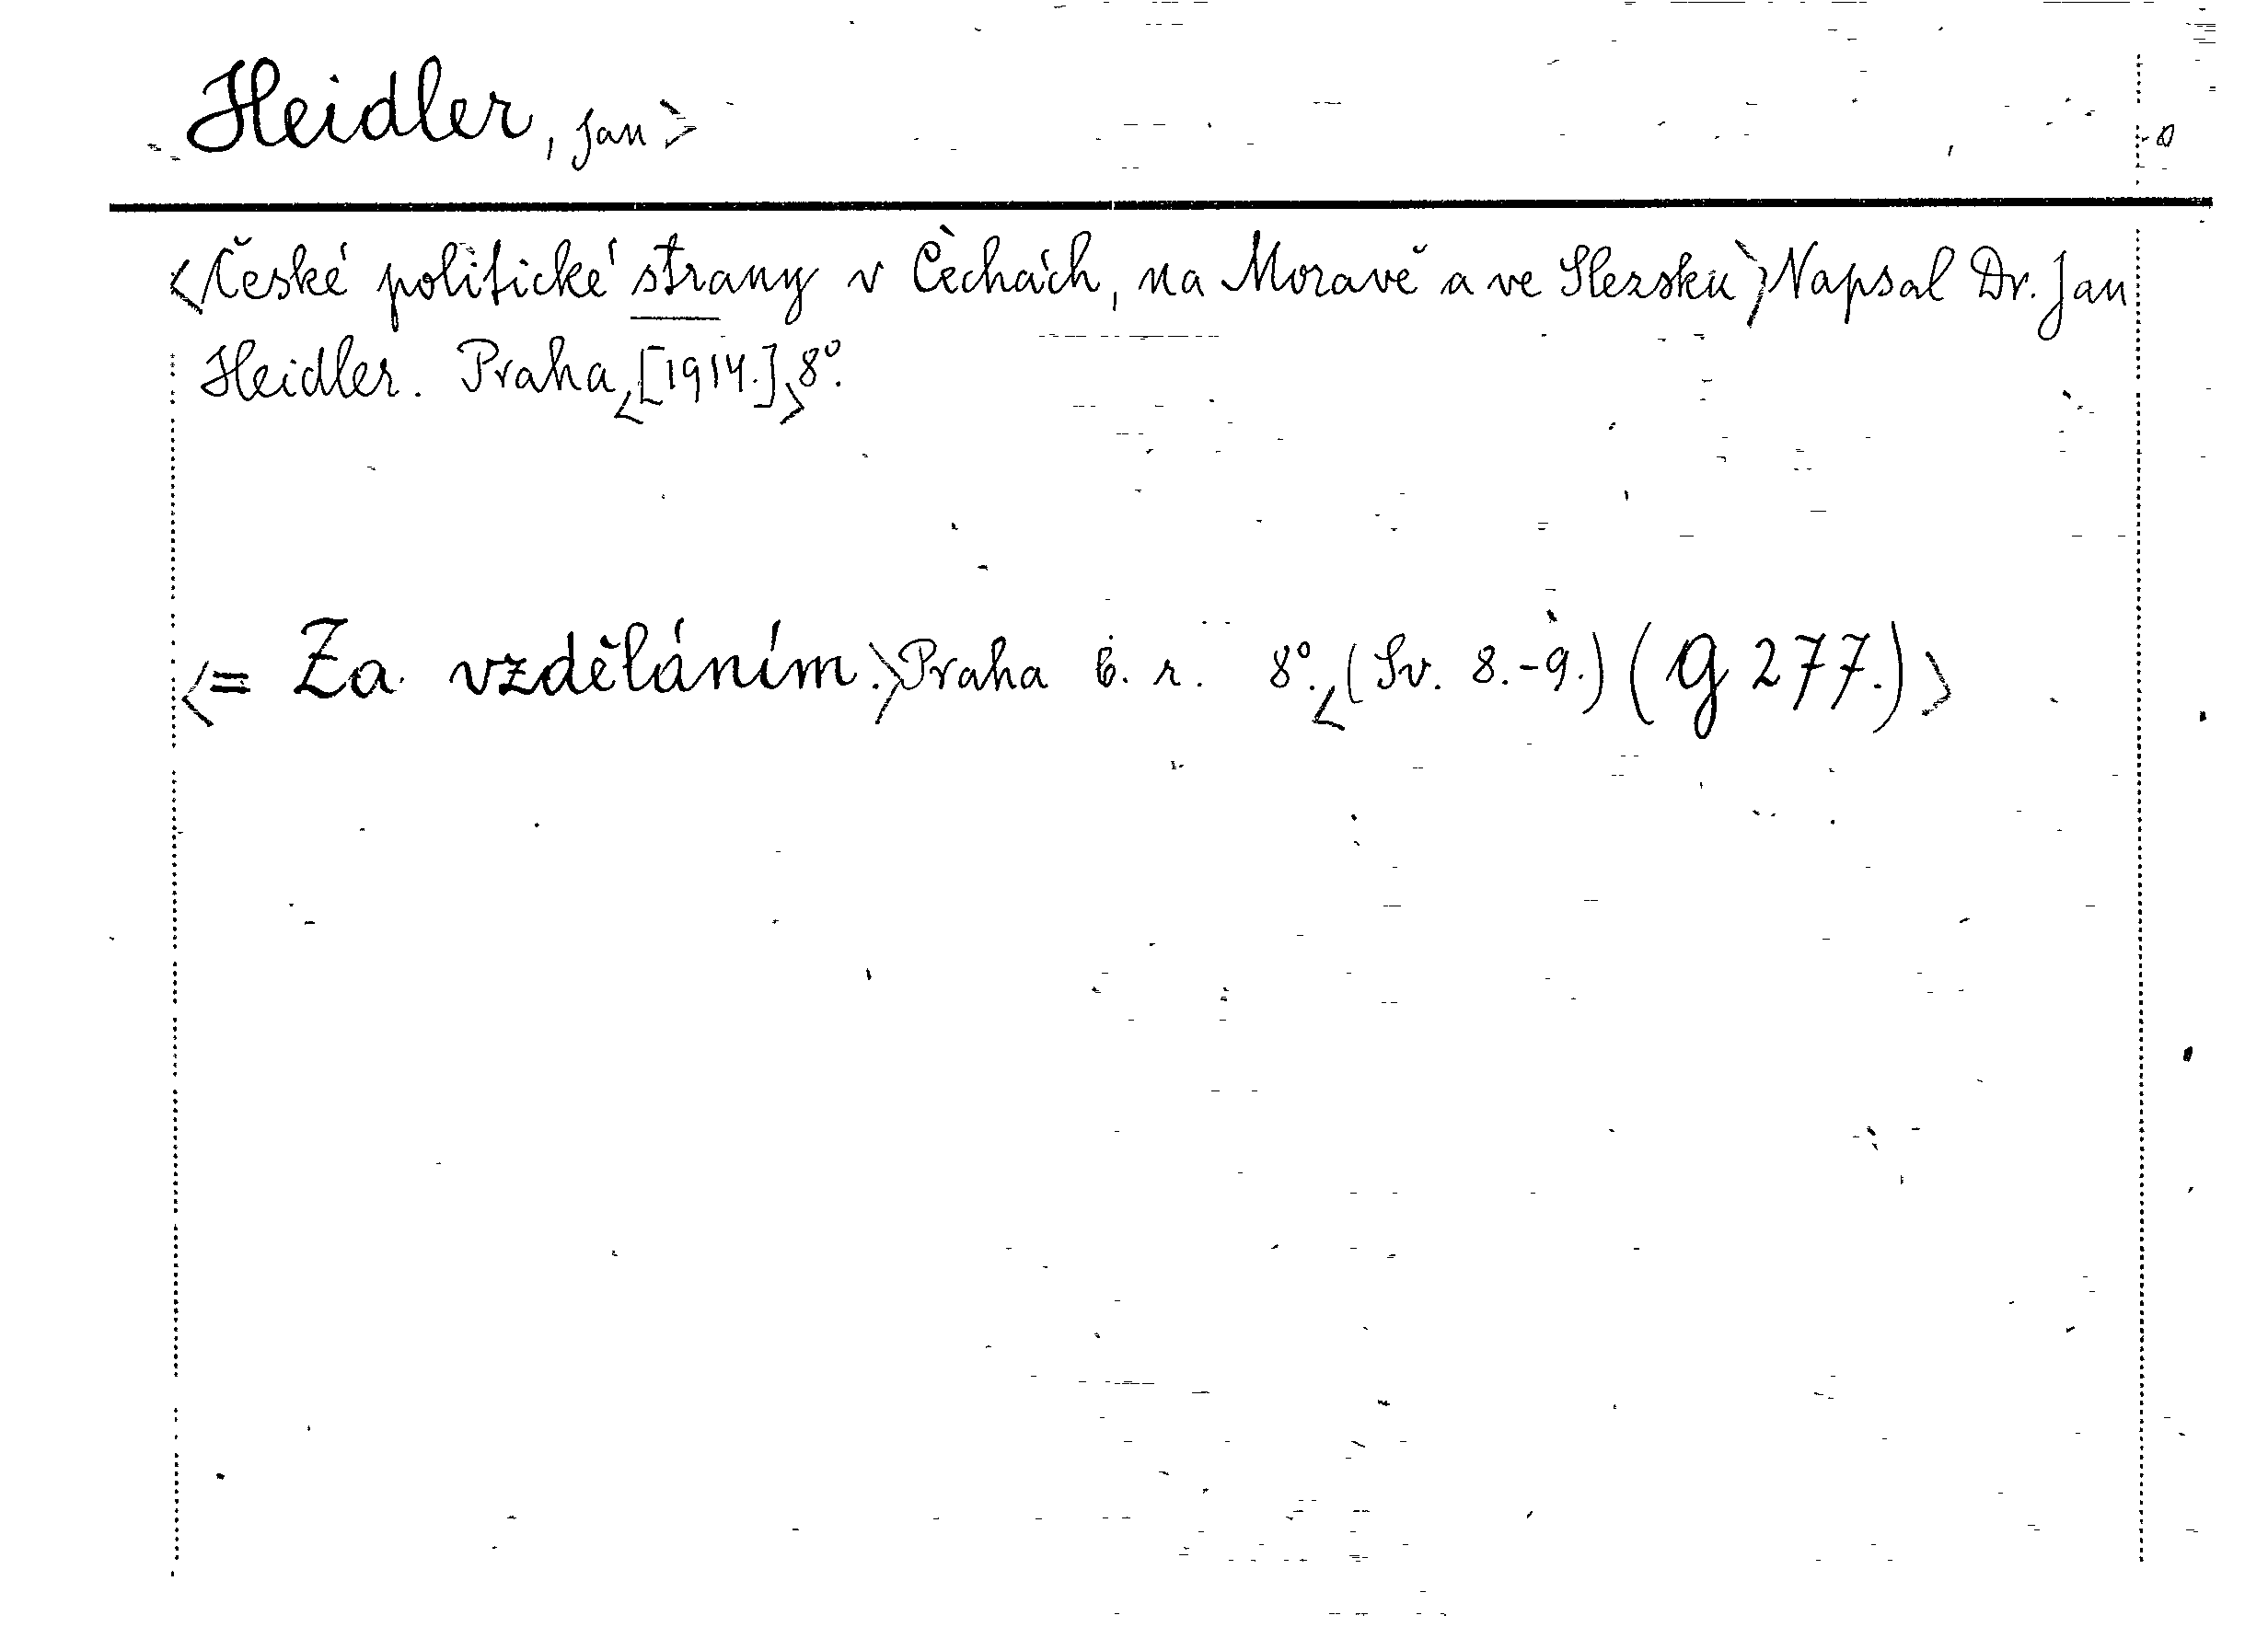 Heidler, Jan>
<České politické strany v Čechách, na Moravě a ve Slezsku> Napsal Dr. Jan
Heidler. Praha <[1914.]> 8°.
<= Za vzděláním.> Praha b. r. 8°. <(Sv. 8.-9.) (G 277.)>